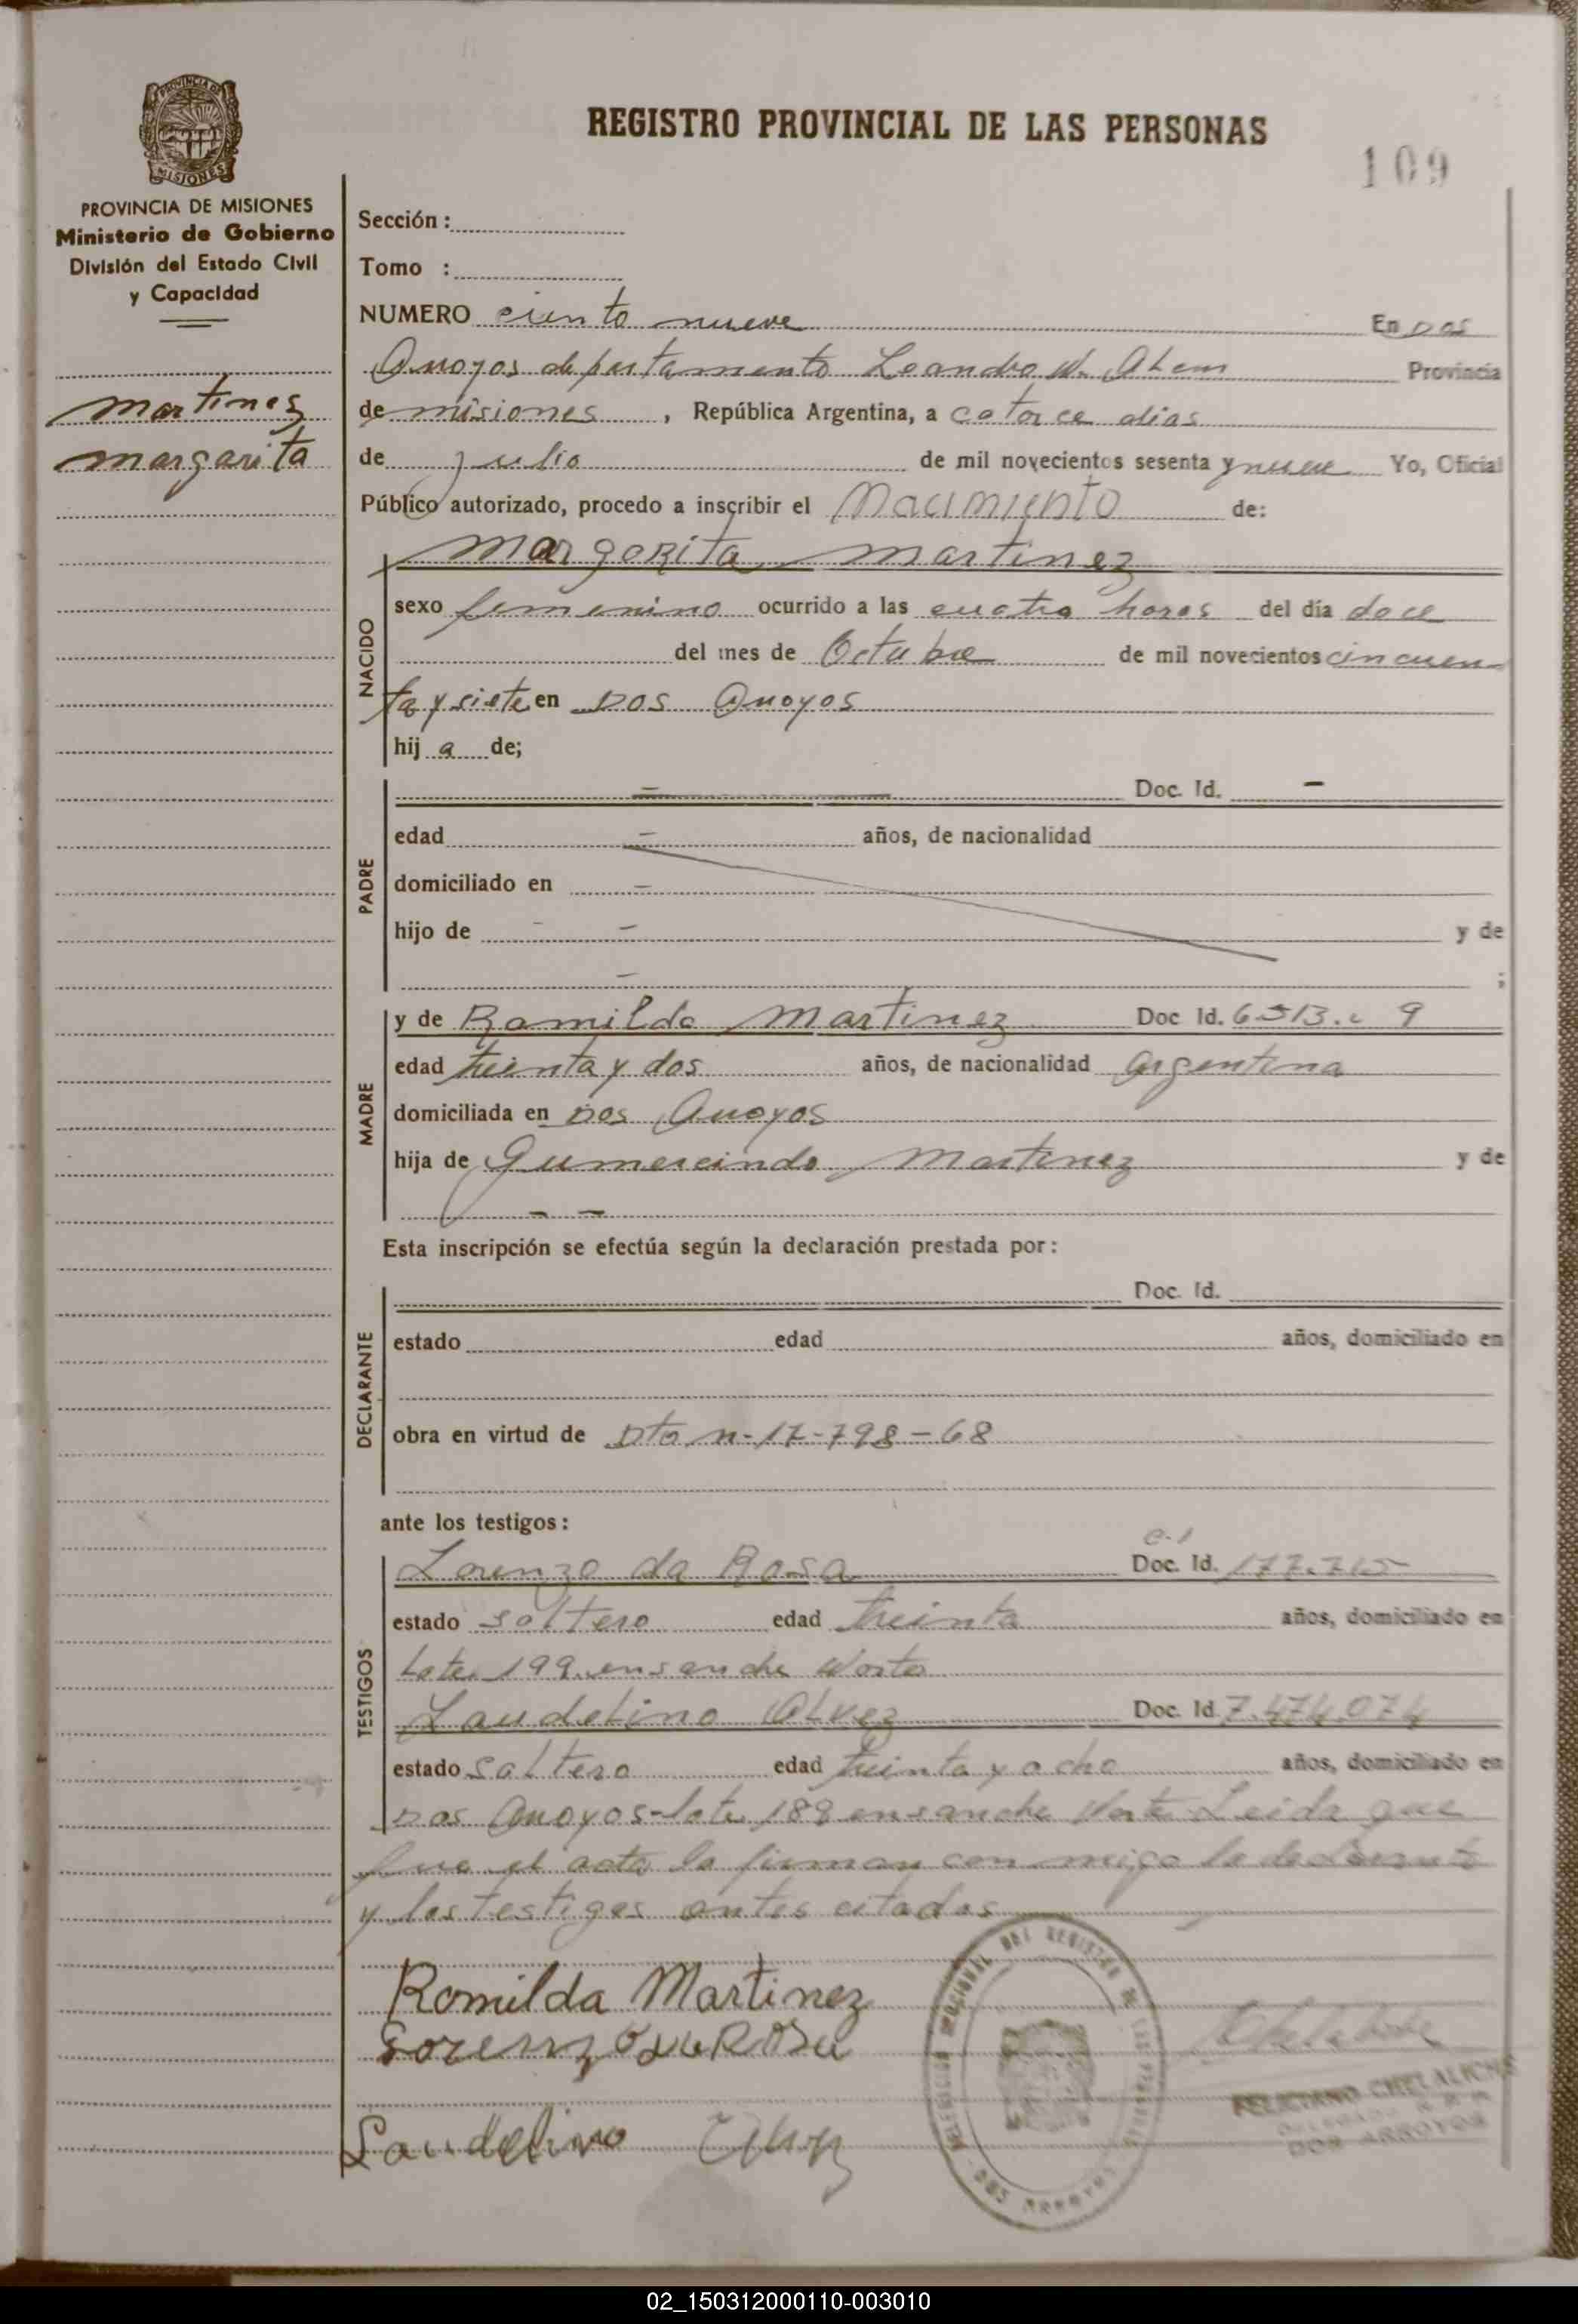 PROVINCIA DE MISIONES
REGISTRO PROVINCIAL DE LAS PERSONAS
109
PROVINCIA DE MISIONES
Ministerio de Gobierno
División del Estado Civil
y Capacidad
Martinez
Margarita
Sección:
Tomo :
NUMERO ciento nueve En Dos
Arroyos departamento Leandro N. Alem Provincia
de misiones, República Argentina, a catorce dias
de julio de mil novecientos sesenta y nueve Yo, Oficial
Público autorizado, procedo a inscribir el Nacimiento de:
Margarita Martinez
NACIDO
sexo femenino ocurrido a las cuatro horas del día doce
del mes de Octubre de mil novecientos cincuen
ta y siete en Dos Arroyos
hij a de;
PADRE
— Doc. Id. —
edad — años, de nacionalidad
domiciliado en —
hijo de — — y de
— ;
MADRE
y de Romilda Martinez Doc Id. 9
edad treinta y dos años, de nacionalidad argentina
domiciliada en Dos Arroyos
hija de Gumercindo Martinez y de
— —
Esta inscripción se efectúa según la declaración prestada por:
DECLARANTE
Doc. Id.
estado edad años, domiciliado en
obra en virtud de Dto n-17-798-68
ante los testigos:
TESTIGOS
c.1
Lorenzo da Rosa Doc. Id.
estado soltero edad treinta años, domiciliado en
Lote 199 ensanche Norte
Laudelino Alvez Doc. Id. 7.474.074
estado soltero edad treinta y ocho años, domiciliado en
Dos Arroyos-lote 188 ensanche Norte Leida que
fue el acta la firman con migo la declarante
y los testigos antes citados
Romilda Martinez
Lorenzo da Rosa
Laudelino Alvez
FELICIANO
DOS ARROYOS
DEL REGISTRO DE LAS PERSONAS
DOS ARROYOS
02_150312000110-003010